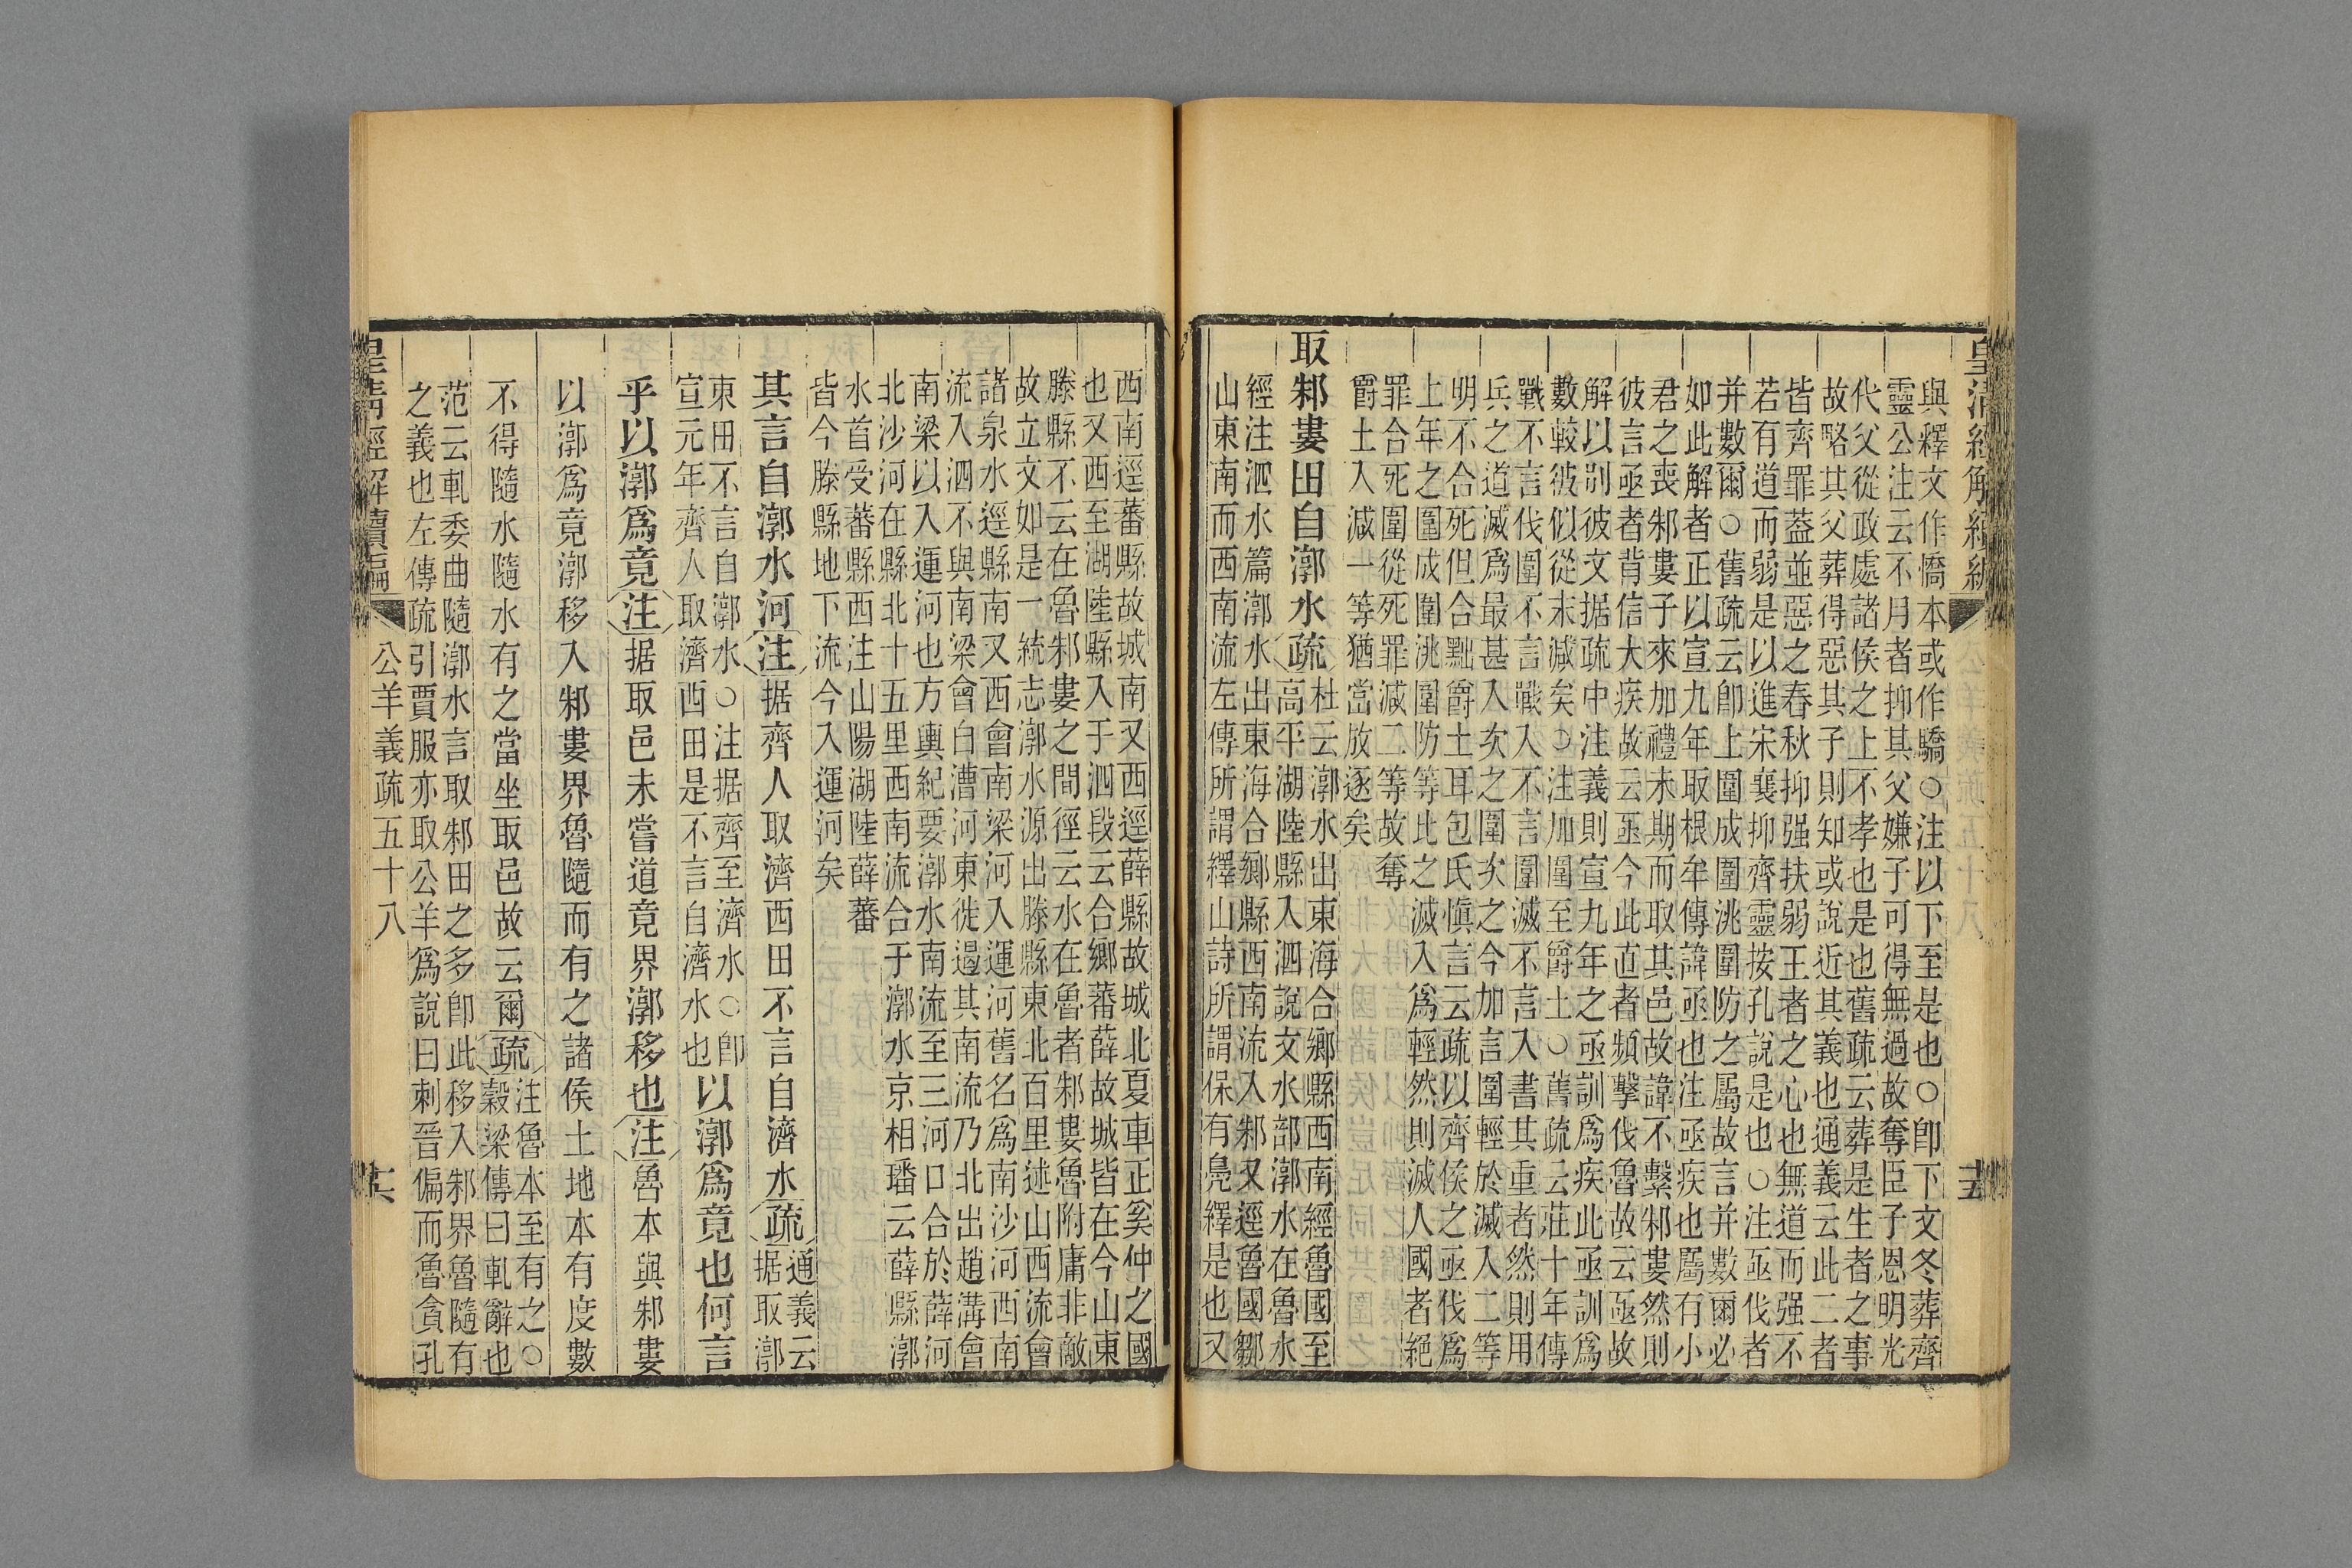 皇清經解續編
十五
與釋文作憍本或作驕○注以下至是也○卽下文冬葬齊
靈公注云不月者抑其父嫌子可得無過故奪臣子恩明光
代父從政處諸侯之上不孝也是也舊疏云葬是生者之事
故略其父葬得惡其子則知或說近其義也通義云此二者
皆齊罪葢並惡之春秋抑强扶弱王者之心也無道而强不
若有道而弱是以進宋襄抑齊靈按孔說是也○注亟伐者
并數爾○舊疏云卽上圍成圍洮圍防之屬故言并數爾必
如此解者正以宣九年取根牟傳諱亟也注亟疾也屬有小
君之喪邾婁子來加禮未期而取其邑故諱不繫邾婁然則
彼言亟者背信大疾故云亟今此直者頻擊伐魯故云亟故
解以刉彼文据疏中注義則宣九年之亟訓爲疾此亟訓爲
數較彼似從末減矣○注加圍至爵土○舊疏云莊十年傳
戰不言伐圍不言戰入不言圍滅不言入書其重者然則用
兵之道滅爲最甚入次之圍次之今加言圍輕於滅入二等
明不合死但合黜爵土耳包氏愼言云疏以齊侯之亟伐爲
上年之圍成圍洮圍防等比之滅入爲輕然則滅人國者絕
罪合死圍從死罪減二等故奪
爵土入減一等猶當放逐矣
取邾婁田自漷水疏杜云漷水出東海合鄉縣西南經魯國至
高平湖陸縣入泗說文水部漷水在魯水
經注泗水篇漷水出東海合鄉縣西南流入邾又逕魯國鄒
山東南而西南流左傳所謂繹山詩所謂保有鳧繹是也又
西南逕蕃縣故城南又西逕薛縣故城北夏車正奚仲之國
也又西至湖陸縣入于泗段云合鄉蕃薛故城皆在今山東
滕縣不云在魯邾婁之間徑云水在魯者邾婁魯附庸非敵
故立文如是一統志漷水源出滕縣東北百里述山西流會
諸泉水逕縣南又西會南梁河入運河舊名爲南沙河西南
流入泗不與南梁會自漕河東徙遏其南流乃北出趙溝會
南梁以入運河也方輿紀要漷水南流至三河口合於薛河
北沙河在縣北十五里西南流合于漷水京相璠云薛縣漷
水首受蕃縣西注山陽湖陸薛蕃
皆今滕縣地下流今入運河矣
其言自漷水河注据齊人取濟西田不言自濟水疏通義云
据取漷
東田不言自漷水○注据齊至濟水○卽
宣元年齊人取濟西田是不言自濟水也以漷爲竟也何言
乎以漷爲竟注据取邑未嘗道竟界漷移也注魯本與邾婁
以漷爲竟漷移入邾婁界魯隨而有之諸侯土地本有度數
不得隨水隨水有之當坐取邑故云爾疏注魯本至有之○
穀梁傳曰軋辭也
范云軋委曲隨漷水言取邾田之多卽此移入邾界魯隨有
之義也左傳疏引賈服亦取公羊爲說曰刺晉偏而魯貪孔
皇清經解續編
公羊義疏五十八
十六